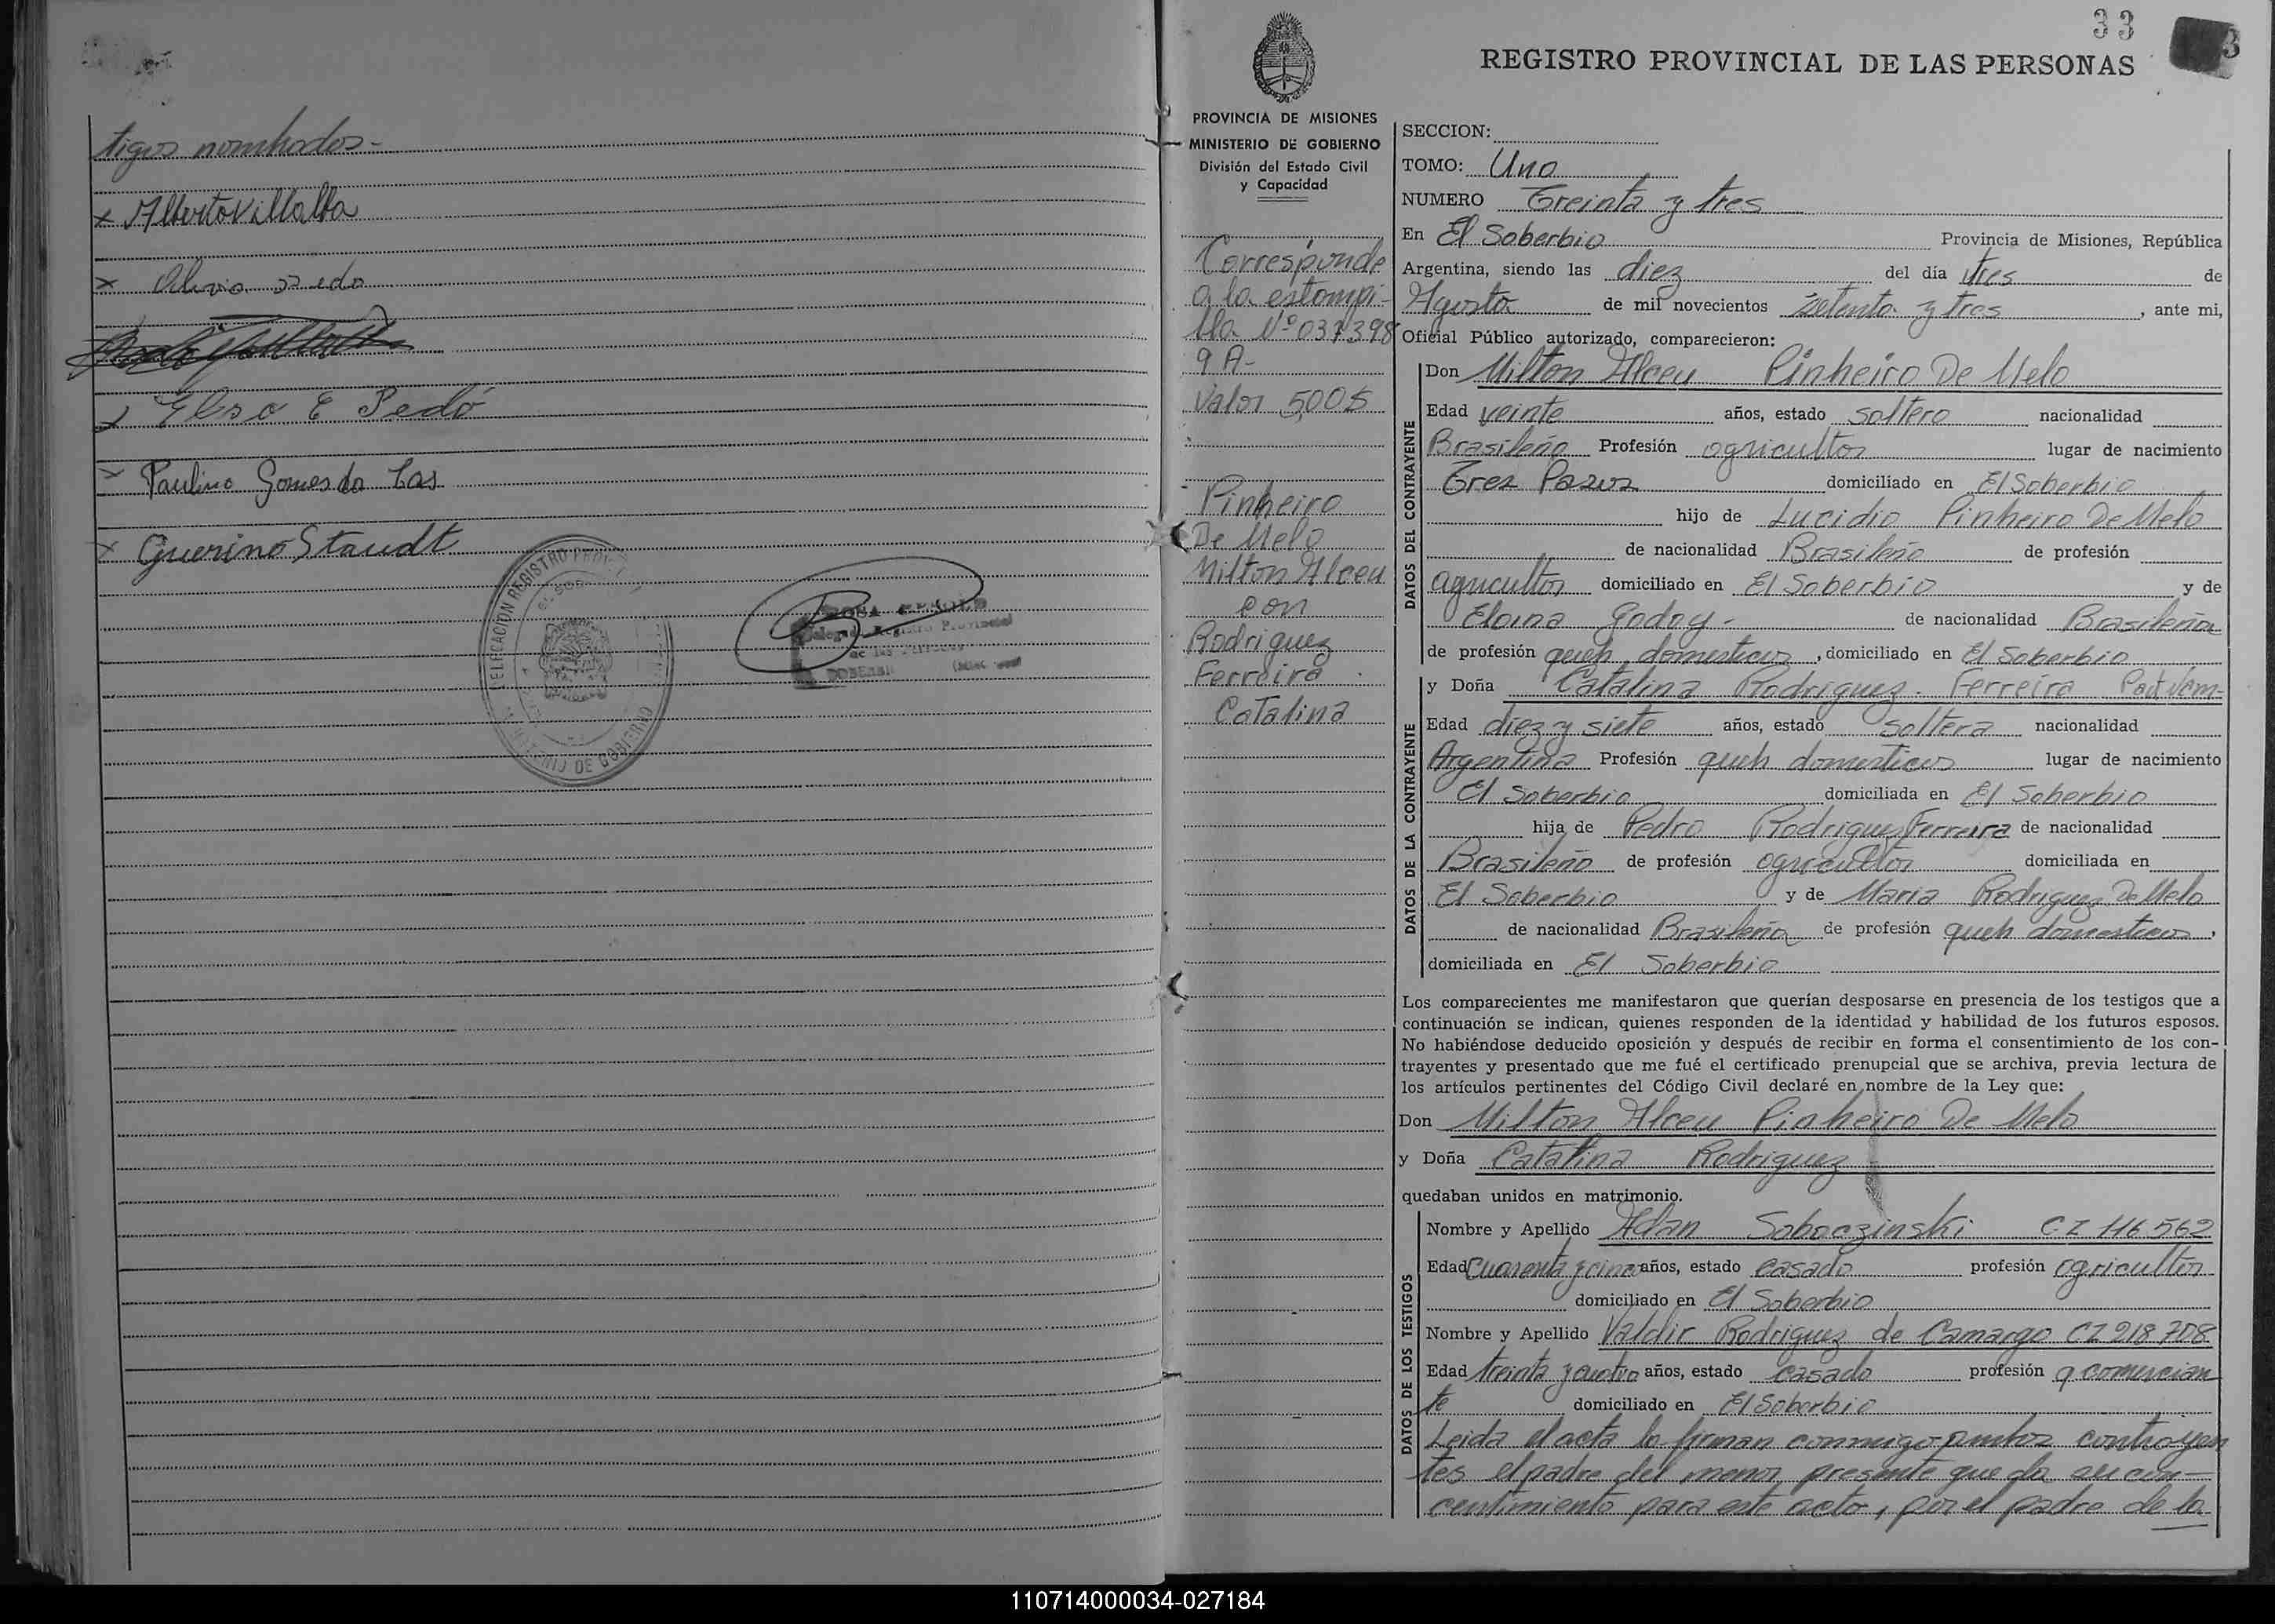 tigos nombrados-
x Alberto Villalba
x Olivia
x Elso E Pedó
x Paulino Gomes da
x Guerino Staudt
DELEGACION REGISTRO
DE GOBIERNO
33
REGISTRO PROVINCIAL DE LAS PERSONAS
3
PROVINCIA DE MISIONES
MINISTERIO DE GOBIERNO
División del Estado Civil
y Capacidad
Corresponde
a la estampi-
lla Nº 037398
9 A-
Valor 5,00$
Pinheiro
De Melo
Milton Alceu
con
Rodriguez
Ferreira
Catalina
SECCION:
TOMO: Uno
NUMERO Treinta y tres
En El Soberbio Provincia de Misiones, República
Argentina, siendo las diez del día tres de
Agosto de mil novecientos setenta y tres, ante mi,
Oficial Público autorizado, comparecieron:
DATOS DEL CONTRAYENTE
Don Milton Alceu Pinheiro De Melo
Edad veinte años, estado soltero nacionalidad
Brasileño Profesión agricultor lugar de nacimiento
Tres Pasos domiciliado en El Soberbio
hijo de Lucidio Pinheiro De Melo
de nacionalidad Brasileño de profesión
agricultor domiciliado en El Soberbio y de
Eloina Godoy- de nacionalidad Brasileña
de profesión queh domesticos, domiciliado en El Soberbio
DATOS DE LA CONTRAYENTE
y Doña Catalina Rodriguez- Ferreira
Edad diez y siete años, estado soltera nacionalidad
Argentina Profesión queh domesticos lugar de nacimiento
El Soberbio domiciliada en El Soberbio
hija de Pedro Rodriguez Ferreira de nacionalidad
Brasileño de profesión agricultor domiciliada en
El Soberbio y de Maria Rodriguez De Melo
de nacionalidad Brasileña de profesión queh domesticos,
domiciliada en El Soberbio
Los comparecientes me manifestaron que querían desposarse en presencia de los testigos que a
continuación se indican, quienes responden de la identidad y habilidad de los futuros esposos.
No habiéndose deducido oposición y después de recibir en forma el consentimiento de los con-
trayentes y presentado que me fué el certificado prenupcial que se archiva, previa lectura de
los artículos pertinentes del Código Civil declaré en nombre de la Ley que:
Don Milton Alceu Pinheiro De Melo
y Doña Catalina Rodriguez
quedaban unidos en matrimonio.
DATOS DE LOS TESTIGOS
Nombre y Apellido Adan Soboczinski CI 116562
Edad Cuarenta y cinco años, estado casado profesión agricultor
domiciliado en El Soberbio
Nombre y Apellido Valdir Rodriguez de Camargo CI 218.708
Edad treinta y cuatro años, estado casado profesión comercian
te domiciliado en El Soberbio
Leida el acta la firman conmigo ambos contrayen
tes el padre del menor presente que da su con-
centimiento para este acto, por el padre de la
110714000034-027184